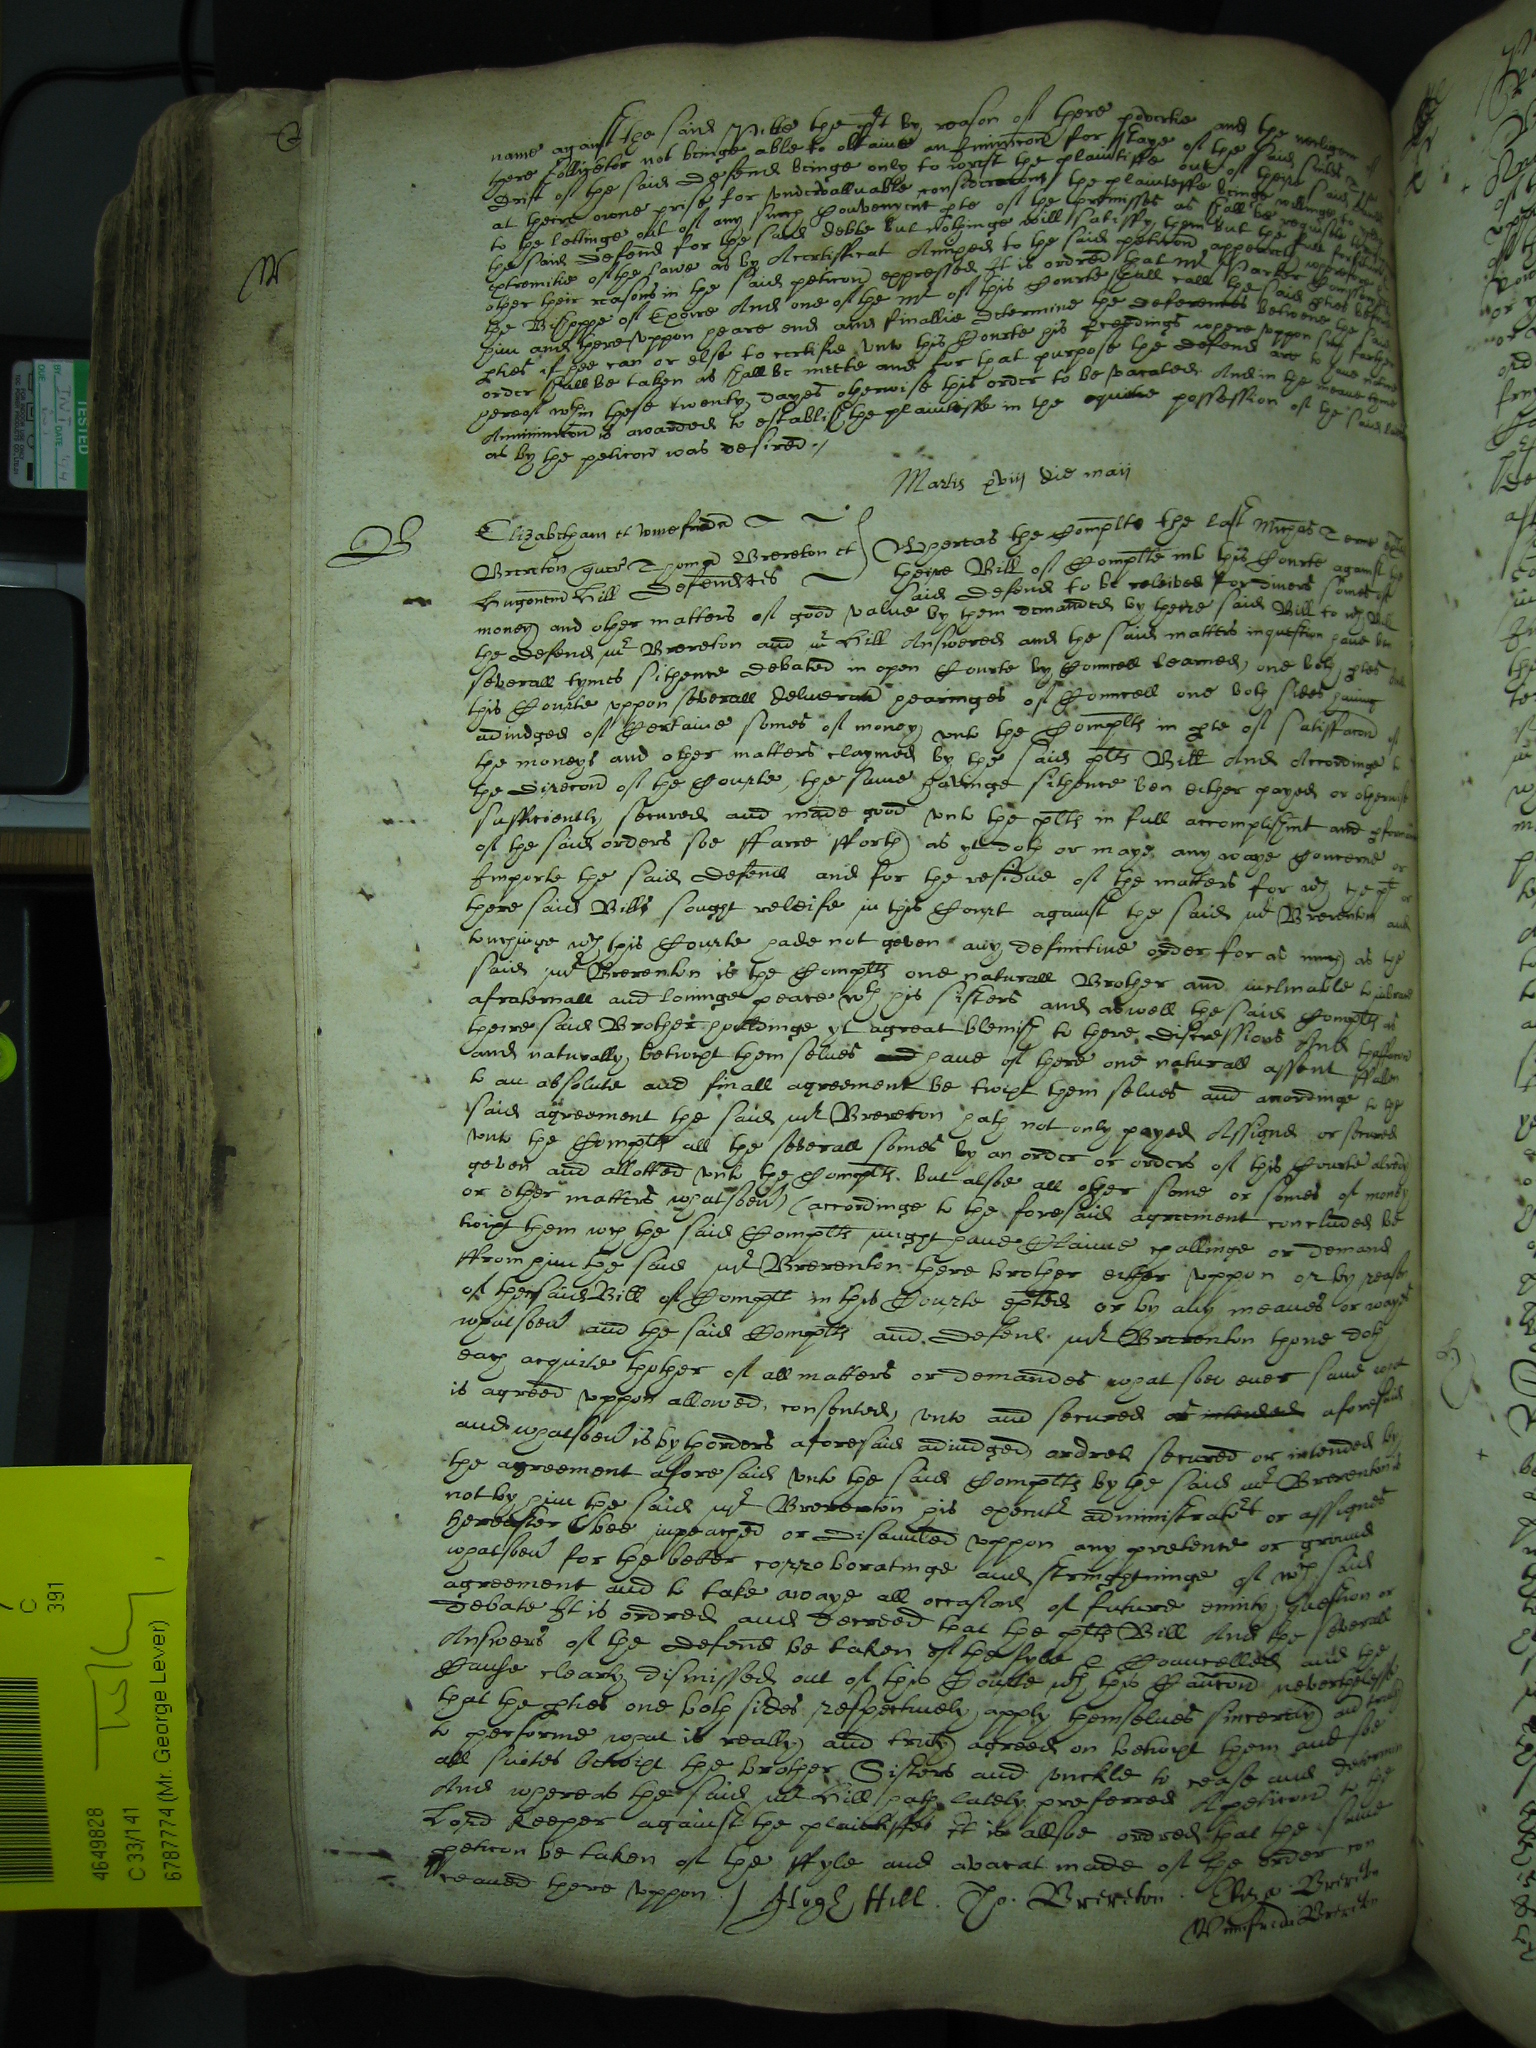 name against the said Wills the plt by reason of there povertie and the negligence of
there Sollicitor not beinge able to obtaine an Iniunccon for staye of the said suites
drift of the said Defend beinge only to wrest the plaintiffe out of theire said
at there owne prise for undervalluable consideracons the plaintiffe beinge willinge to
to the lettinge out of any such Convenyent pte of the premisses as shall be requisite
the said Defend for the said debte but nothinge will satisfy them but the full
extremitie of the lawe as by A Certifficat Annexed to the said peticon appeareth wherefore
other their reasons in the said peticon expressed It is ordred that Mr Parker
the Bishoppe of Exon And one of the Mrs of this Courte shall call the said pties before
him and thereuppon heare end and finallie determine the deferences betwene the said
pties if hee can or else to certifie unto this Courte his procedings whereuppon such further
order shall be taken as shall be meete and for that purpose the Defend are to have notice
hereof wthin these twenty dayes otherwise this order to be vacated And in the meane tyme
An Iniunccon is awarded to establish the plaintiffe in the quiet possession of the said
as by the peticon was desired
Martis xviij die maij
B
Elizabetham et Winefridd
Brereton quer Thomam Brereton et
Hugonem Hill Defendtes
Whereas the Complts the last Michas Terme
theire Bill of Complte into this Courte against the
said Defend to be releived for divers somes of
money and other matters of good value by them demanded by theire said Bill to wch
the Defend Mr Brereton and Mr Hill Answered and the said matters in question have bin
severall tymes sithence debated in open Courte by Councell learned one both ptes
this Courte uppon severall deliverat hearinges of Councell one both sides having
adiudged of Certaine somes of money unto the Complts in pte of satisfaccon of
the moneys and other matters claymed by the said plts Bill And Accordinge to
the direccon of the Courte, the same havinge sithence ben either payed or otherwise
sufficiently secured and made good unto the plts in full accomplishmt and
of the said orders soe farre fforth as yt doth or maye any waye Concerne or
Importe the said Defend and for the residue of the matters for wch the plts
there said Bills sought releife in this Court against the said Mr Brereton and
touchinge wch this Courte hade not geven any definitive order for as much as the
said Mr Brereton is the Complts one naturall Brother and inclinable to imbrace
a fraternall and lovinge peace wth his sisters and as well the said Complts as
theire said Brother houldinge yt a great blemish to there discressions And
and naturally betwixt them selves have of there one naturall assent ffallen
to an absolute and finall agreement betwixt them selves and accordinge to the
said agreement the said Mr Brereton hath not only payed Assigned or secured
unto the Complts all the severall somes by an order or orders of this Courte already
geven and allotted unto the Complts. but alsoe all other some or somes of money
or other matters whatsoev (accordinge to the foresaid agreement concluded be
twixt them wch the said Complts might have Claime challinge or demand
ffrom him the said Mr Brereton there brother either uppon or by reason
of the said Bill of Complt in this Courte exhted or by any meanes or wayes
whatsoev and the said Complts and Defend Mr Brereton thone doth
each acquite thother of all matters or demandes whatsoever save what
is agreed uppon allowed, consented, unto and secured as intended aforesaid
and whatsoev is by thorders aforesaid adiudged ordred secured or intended by
the agreement aforesaid unto the said Complts by the said Mr Brereton is
not by him the said Mr Brereton his execut administrators or assignes
hereafter to bee impeached or disanulled uppon any pretence or ground
whatsoev for the better corroboratinge and strenghtninge of wch said
agreement and to take awaye all occasions of future eminty question or
debate It is ordred and decreed that the plts Bill And the severall
Answers of the Defend be taken of the fyle & Cancelled and the
Cause clearly dismissed out of this Courte wth this Caution nevertheless
that the pties one both sides respectively apply themselves sincerely and truly
to performe what is really and truly agreed on betwixt them and soe
all suites betwixt the brother Sisters and unckle to cease and determin
And whereas the said Mr Hill hath lately preferred A peticon to the
Lord Keeper against the plaintiffes It is allsoe ordred that the same
peticon be taken of the ffyle and a vacat made of the order con
ceaved there uppon / Hugh Hill. Tho. Brereton. Eliza: Brereton
Winifrid Brereton
TESTED
BY INT DATE
DUE
C
391
4649828
C 33/141
6787774 (Mr. George Lever)